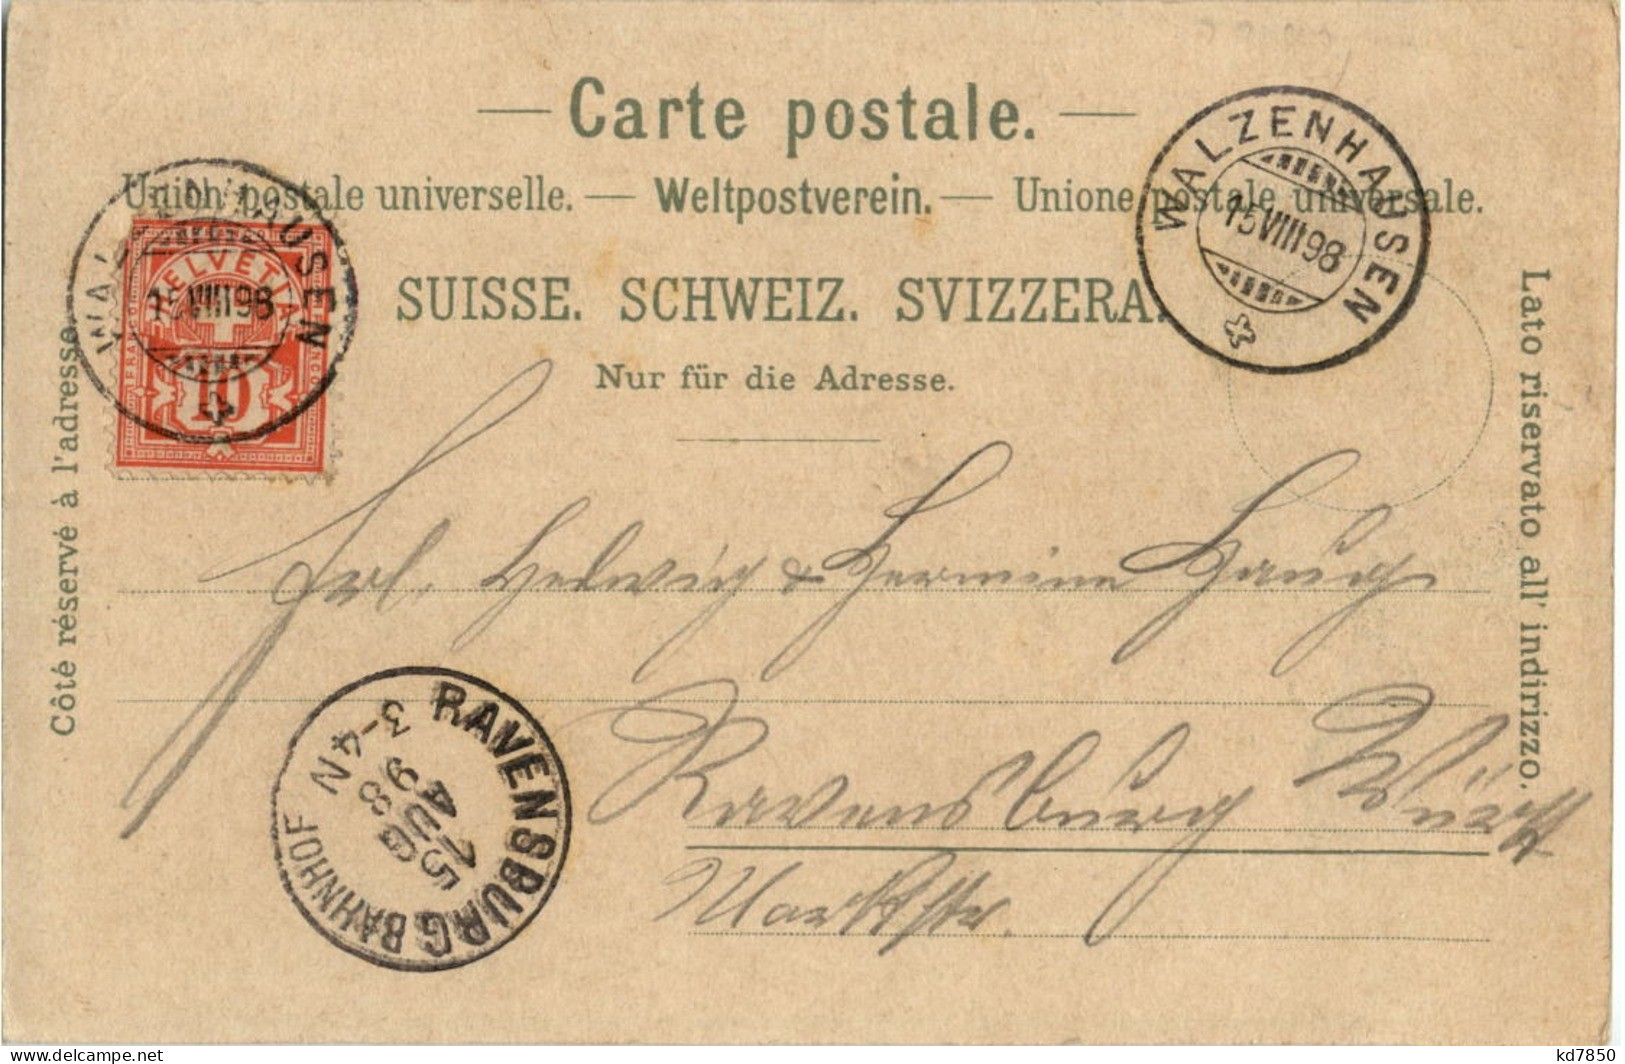 Carte postale.
Union postale universelle. — Weltpostverein. — Unione postale universale.
SUISSE. SCHWEIZ. SVIZZERA.
Nur für die Adresse.
Côté réservé à l'adresse.
Lato riservato all' indirizzo.
WALZENHAUSEN
15 VIII 98
HELVETIA
FRANCO
10
WALZENHAUSEN
15 VIII 98
Frl. Hedwig & Hermine
Ravensburg Württ
Marktstr.
RAVENSBURG BAHNHOF
15 AUG 98
3-4N
delcampe.net
kd7850